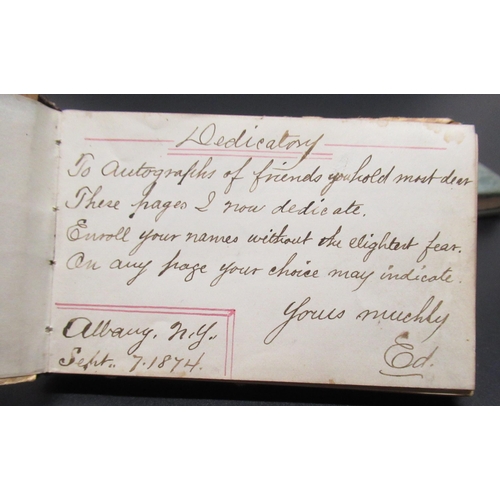 Dedicatory
To Autographs of friends you hold most dear
These pages I now dedicate.
Enroll your names without the slightest fear.
On any page your choice may indicate.
Yours muchly
Ed.
Albany. N.Y.
Sept. 7. 1874.